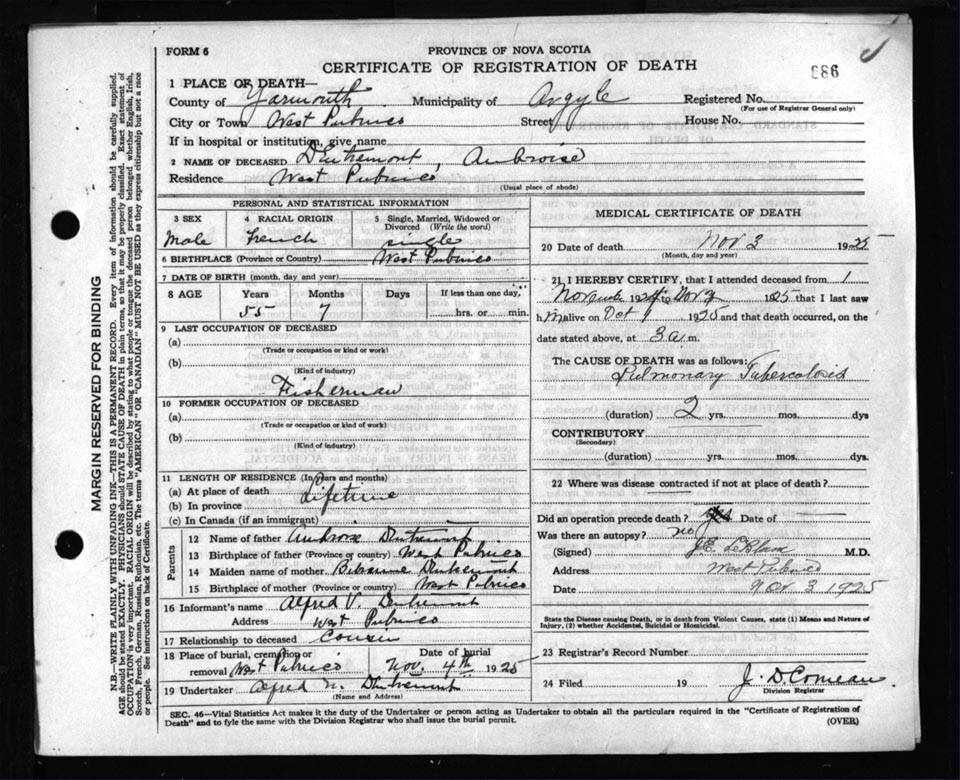 FORM 6
PROVINCE OF NOVA SCOTIA
CERTIFICATE OF REGISTRATION OF DEATH
886
1 PLACE OF DEATH—
County of Yarmouth Municipality of Argyle Registered No.
(For use of Registrar General only)
City or Town West Pubnico Street House No.
If in hospital or institution, give name
2 NAME OF DECEASED D'Entremont, Ambroise
Residence West Pubnico
(Usual place of abode)
PERSONAL AND STATISTICAL INFORMATION
3 SEX 4 RACIAL ORIGIN 5 Single, Married, Widowed or Divorced (Write the word)
Male French single
6 BIRTHPLACE (Province or Country) West Pubnico
7 DATE OF BIRTH (month, day and year)
8 AGE Years Months Days If less than one day,
55 7 hrs. or min.
9 LAST OCCUPATION OF DECEASED
(a)
(Trade or occupation or kind or work)
(b)
(Kind of industry)
Fisherman
10 FORMER OCCUPATION OF DECEASED
(a)
(Trade or occupation or kind or work)
(b)
(Kind of industry)
11 LENGTH OF RESIDENCE (In years and months)
(a) At place of death Lifetime
(b) In province
(c) In Canada (if an immigrant)
Parents
12 Name of father Ambroise D'Entremont
13 Birthplace of father (Province or country) West Pubnico
14 Maiden name of mother D'Entremont
15 Birthplace of mother (Province or country) West Pubnico
16 Informant's name Alfred V. D'Entremont
Address West Pubnico
17 Relationship to deceased Cousin
18 Place of burial, cremation or removal West Pubnico Date of burial Nov. 4th 1925
19 Undertaker Alfred D'Entremont
(Name and Address)
MEDICAL CERTIFICATE OF DEATH
20 Date of death Nov 3 1925
(Month, day and year)
21 I HEREBY CERTIFY, that I attended deceased from 1
to Nov 3 1925 that I last saw
him alive on Oct 1 1925 and that death occurred, on the
date stated above, at 3 a m.
The CAUSE OF DEATH was as follows:
Pulmonary Tuberculosis
(duration) 2 yrs. mos. dys
CONTRIBUTORY
(Secondary)
(duration) yrs. mos. dys.
22 Where was disease contracted if not at place of death?
Did an operation precede death? Date of
Was there an autopsy? no
(Signed) J.E. LeBlanc M.D.
Address West Pubnico
Date Nov 3 1925
State the Disease causing Death, or in death from Violent Causes, state (1) Means and Nature of Injury, (2) whether Accidental, Suicidal or Homicidal.
23 Registrar's Record Number
24 Filed 19 J. D. Comeau
Division Registrar
SEC. 46—Vital Statistics Act makes it the duty of the Undertaker or person acting as Undertaker to obtain all the particulars required in the "Certificate of Registration of
Death" and to fyle the same with the Division Registrar who shall issue the burial permit.
(OVER)
MARGIN RESERVED FOR BINDING
N.B.—WRITE PLAINLY WITH UNFADING INK—THIS IS A PERMANENT RECORD. Every item of information should be carefully supplied.
AGE should be stated EXACTLY. PHYSICIANS should STATE CAUSE OF DEATH in plain terms, so that it may be properly classified. Exact statement of
OCCUPATION is very important. RACIAL ORIGIN will be described by stating to what people or tongue the deceased person belonged whether English, Irish,
Scotch, French, German, Russian, Ruthenian, etc. The terms "AMERICAN" OR "CANADIAN" MUST NOT BE USED as they express citizenship but not a race
or people. See instructions on back of Certificate.